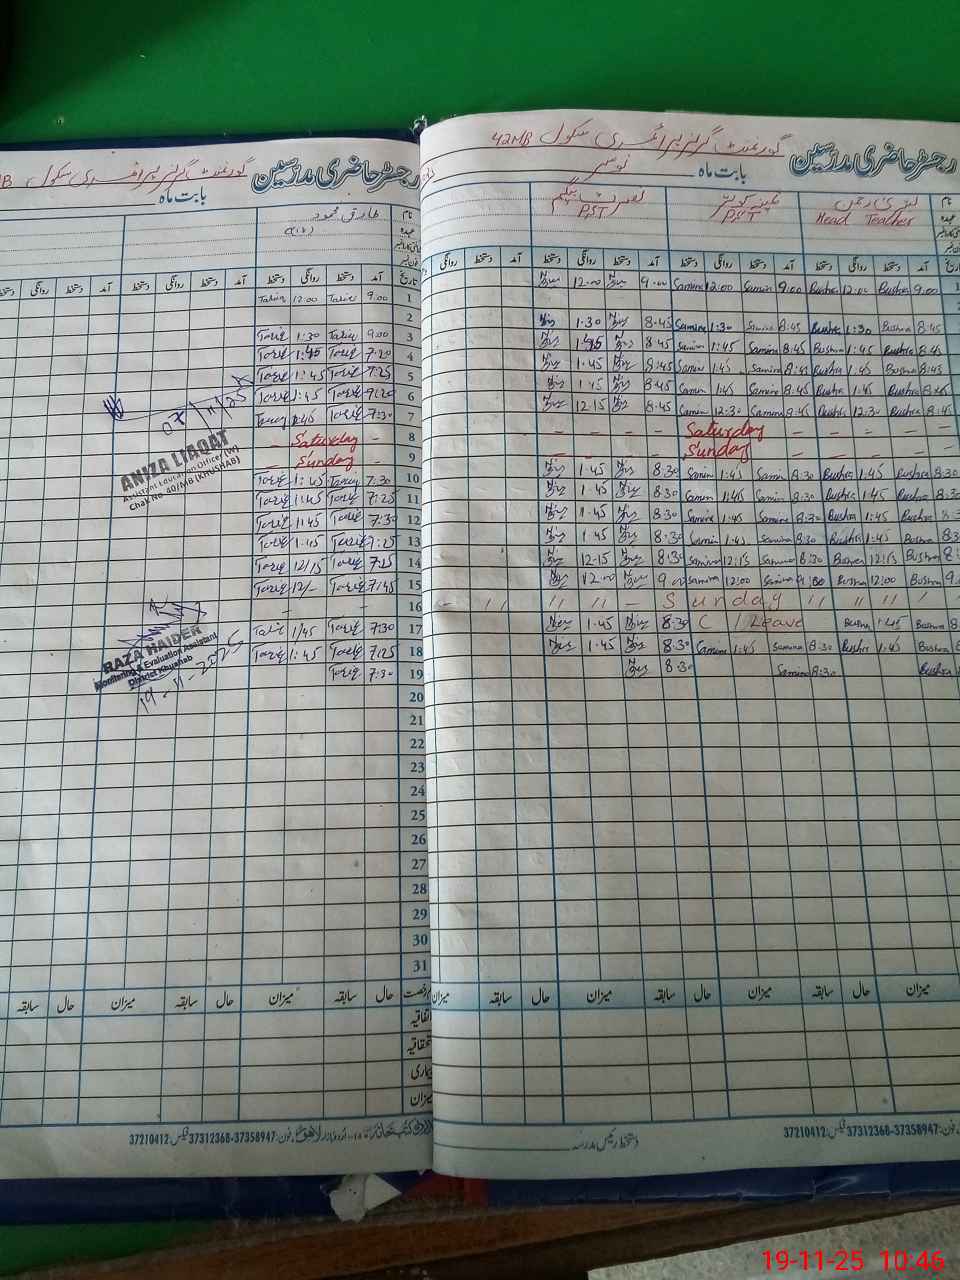 رجسٹر حاضری مدرسین گورنمنٹ گرلز پرائمری سکول 42MB
بابت ماہ نومبر
نام بشریٰ رحمن ثمینہ کوثر نصرت بیگم
عہدہ Head Teacher PST PST
تاریخ آمد دستخط روانگی دستخط آمد دستخط روانگی دستخط آمد دستخط روانگی دستخط آمد دستخط
1 9.00 Bushra 12:00 Bushra 9.00 Samina 12:00 Samina 9.00 12.00
8:45 Bushra 1:30 Bushra 8:45 Samina 1:30 Samina 8.45 1.30
8:45 Bushra 1:45 Bushra 8:45 Samina 1:45 Samina 8.45 1.45
8:45 Bushra 1:45 Bushra 8:45 Samina 1:45 Samina 8:45 1.45
8:45 Bushra 1:45 Bushra 8:45 Samina 1:45 Samina 8.45 1.45
8:45 Bushra 12:30 Bushra 8:45 Samina 12:30 Samina 8.45 12.15
Saturday
Sunday
8:30 Bushra 1:45 Bushra 8:30 Samina 1:45 Samina 8.30 1.45
8:30 Bushra 1:45 Bushra 8:30 Samina 1:45 Samina 8.30 1.45
Bushra 1:45 Bushra 8:30 Samina 1:45 Samina 8.30 1.45
Bushra 1:45 Bushra 8:30 Samina 1:45 Samina 8.30 1.45
Bushra 12:15 Bushra 8:30 Samina 12:15 Samina 8.30 12.15
Bushra 12:00 Bushra Samina 12:00 Samina 12.00
" " " Sunday – " " " –
Bushra 1:45 Bushra C / Leave 8:30 1.45
Bushra 1:45 Bushra 8:30 Samina 1:45 Samina 8.30 1.45
Bushra 8:30 Samina 8.30
میزان حال سابقہ میزان حال سابقہ میزان حال سابقہ میزان
دستخط رئیس مدرسہ
فون: 37312368-37358947 فیکس: 37210412
رجسٹر حاضری مدرسین گورنمنٹ گرلز پرائمری سکول MB
بابت ماہ
نام طارق محمود
عہدہ
تاریخ آمد دستخط روانگی دستخط آمد دستخط روانگی دستخط آمد دستخط روانگی دستخط
1 9.00 Tariq 12:00 Tariq
2
3 9.00 Tariq 1:30 Tariq
4 7:20 Tariq 1:45 Tariq
5 7:25 Tariq 1:45 Tariq
6 Tariq 1:45 Tariq
7 7:30 Tariq Tariq
8 – Saturday –
9 – Sunday –
10 7:30 Tariq 1:45 Tariq
11 7:25 Tariq 1:45 Tariq
12 7:30 Tariq 1:45 Tariq
13 7:25 Tariq 1:45 Tariq
14 7:25 Tariq 12/15 Tariq
15 7:45 Tariq 12/- Tariq
16 – –
17 7:30 Tariq 1/45 Tariq
18 7:25 Tariq 1:45 Tariq
19 7:30 Tariq
20
21
22
23
24
25
26
27
28
29
30
31
07/11/25
ANIZA LIAQAT
Assistant Education Officer (W)
Chak No. 40/MB (KHUSHAB)
RAZA HAIDER
Monitoring & Evaluation Assistant
District Khushab
19-11-2025
رخصت حال سابقہ میزان حال سابقہ میزان حال سابقہ
اتفاقیہ
استحقاقیہ
بیماری
میزان
فون: 37312368-37358947 فیکس: 37210412
19-11-25 10:46